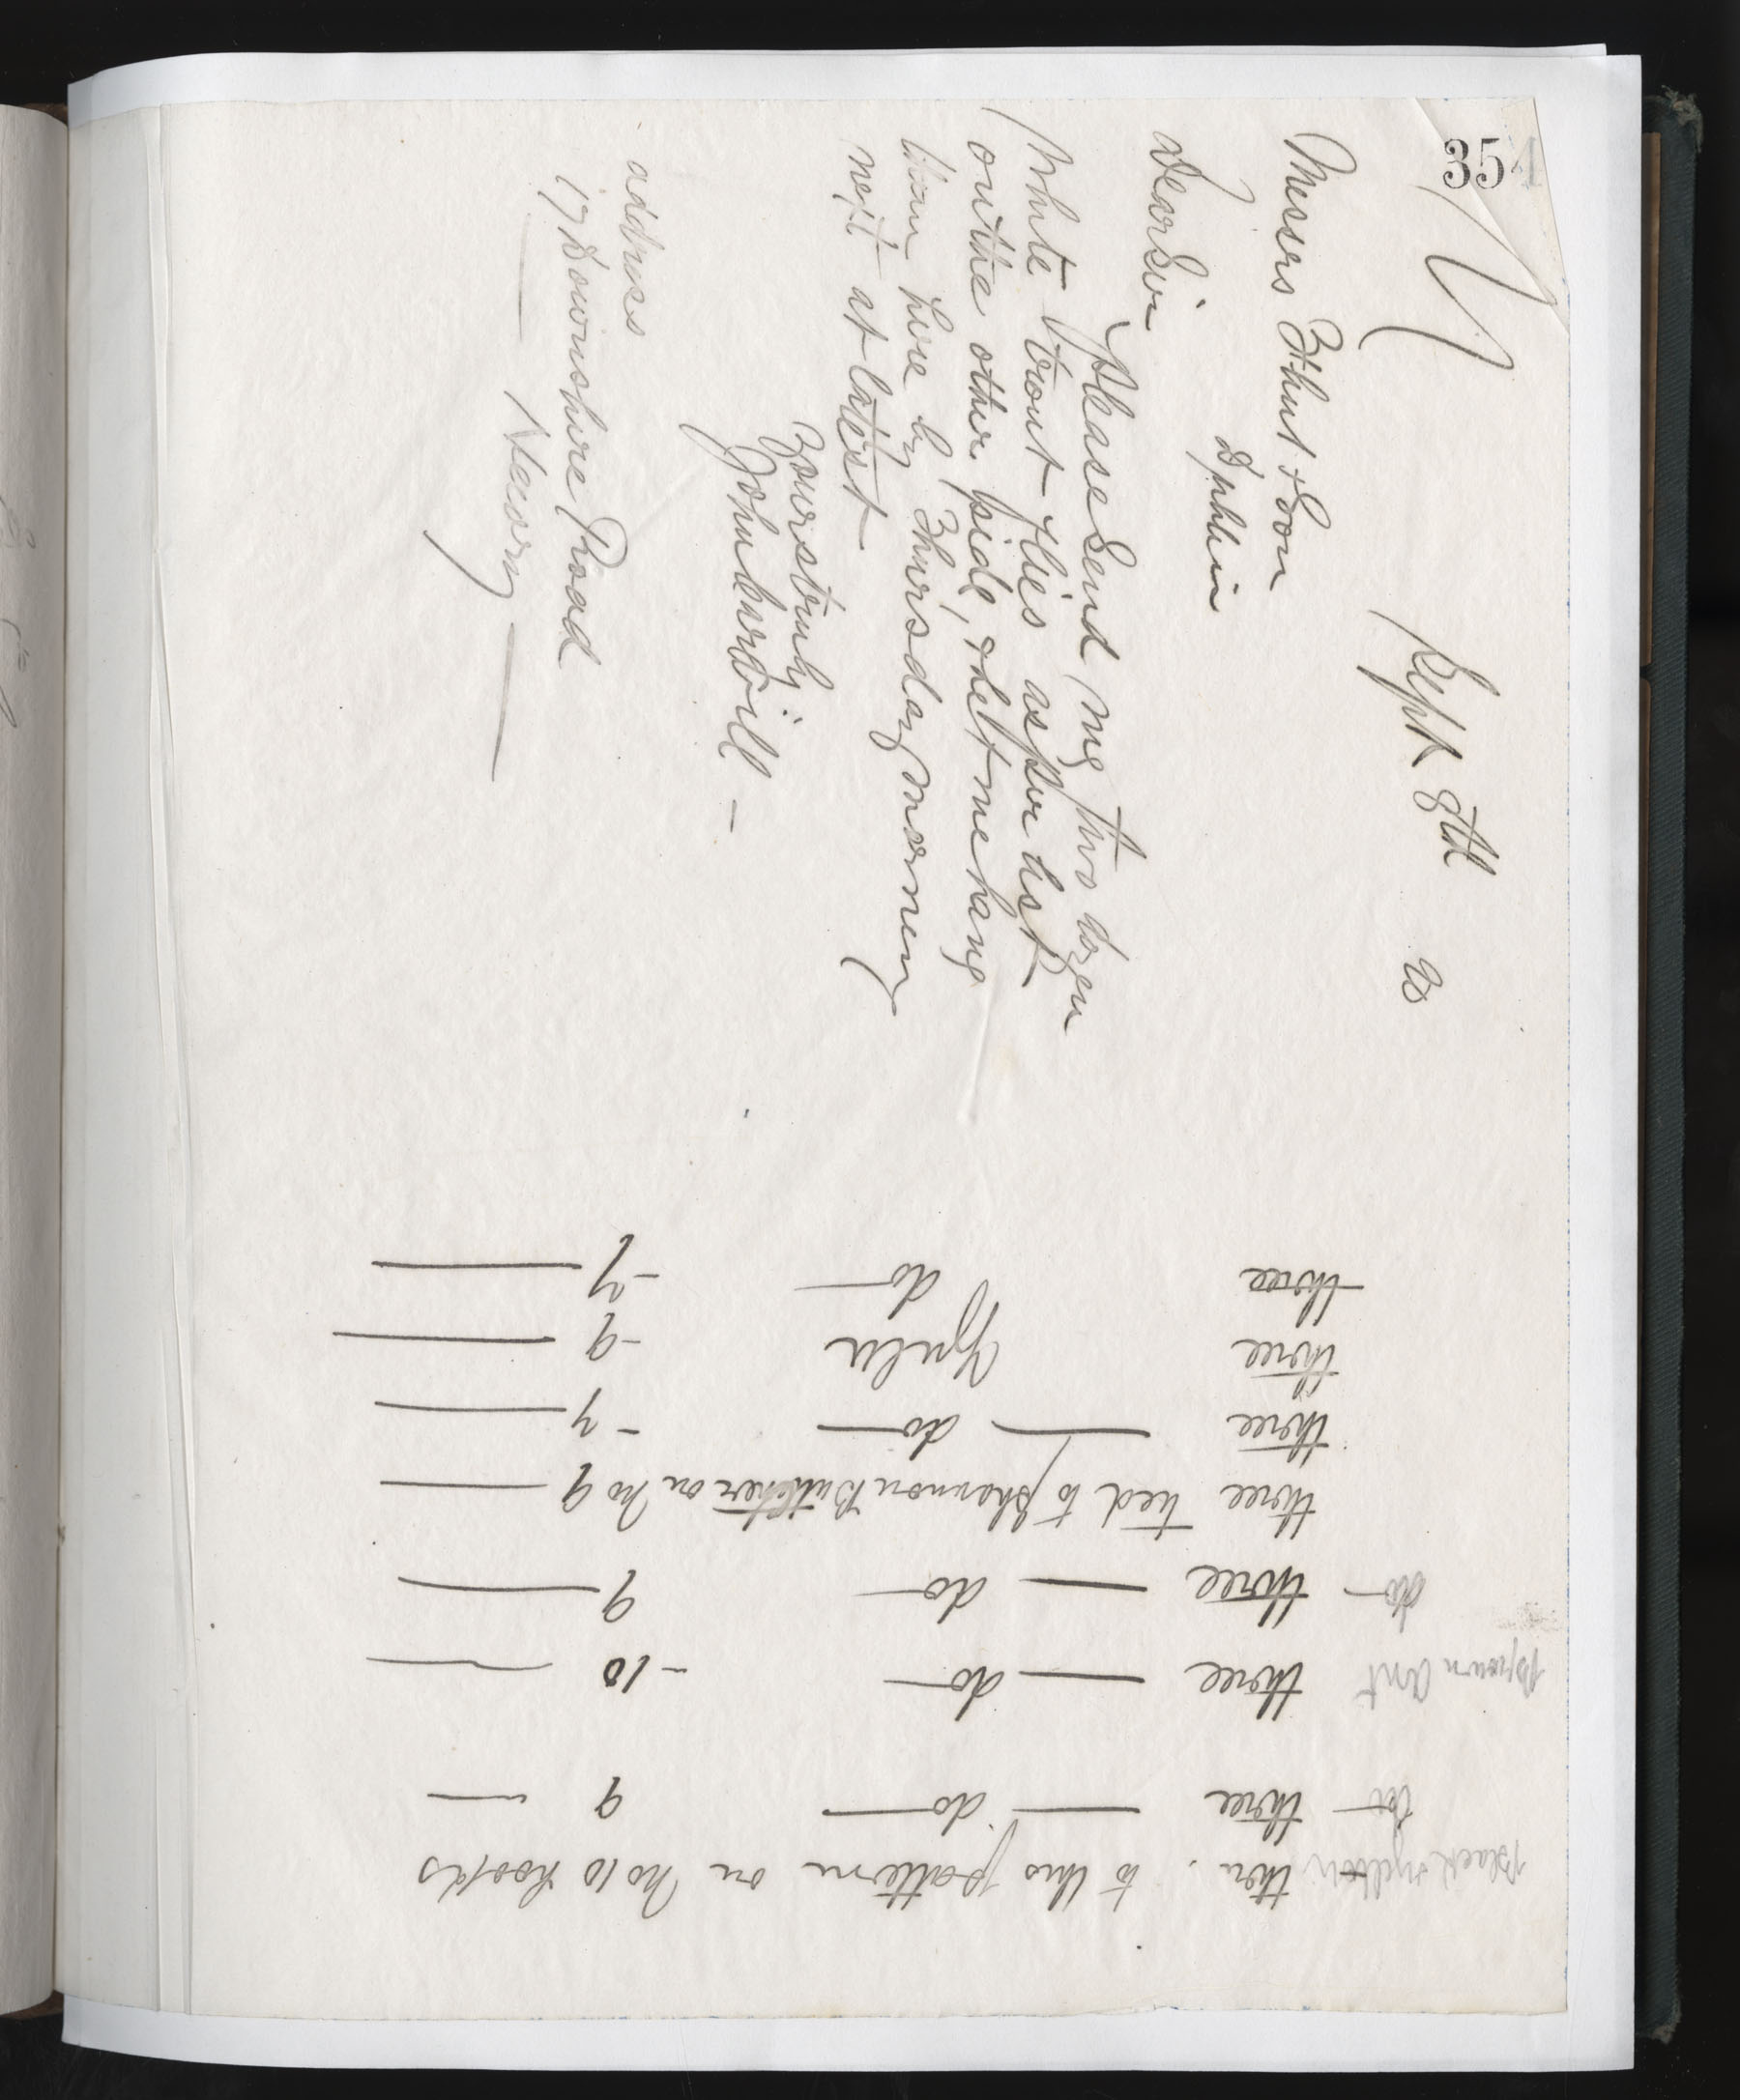 354
Sept 8th 20
Messrs Hunt & Son
Dublin
Dear Sir
Please Send me two dozen
white trout flies as per list
on the other side, & let me have
them here by Thursday morning
next at latest
Yours truly
John
address
17 Downshire Road
Newry
three to this pattern on No 10 hooks
do three — do — 9 —
Brown Ant three — do — - 10 —
do three — do — 9 —
three tied to Shannon Butcher on No 9 —
three — do — - 7 —
three Zulu - 9 —
three do — - 7 —